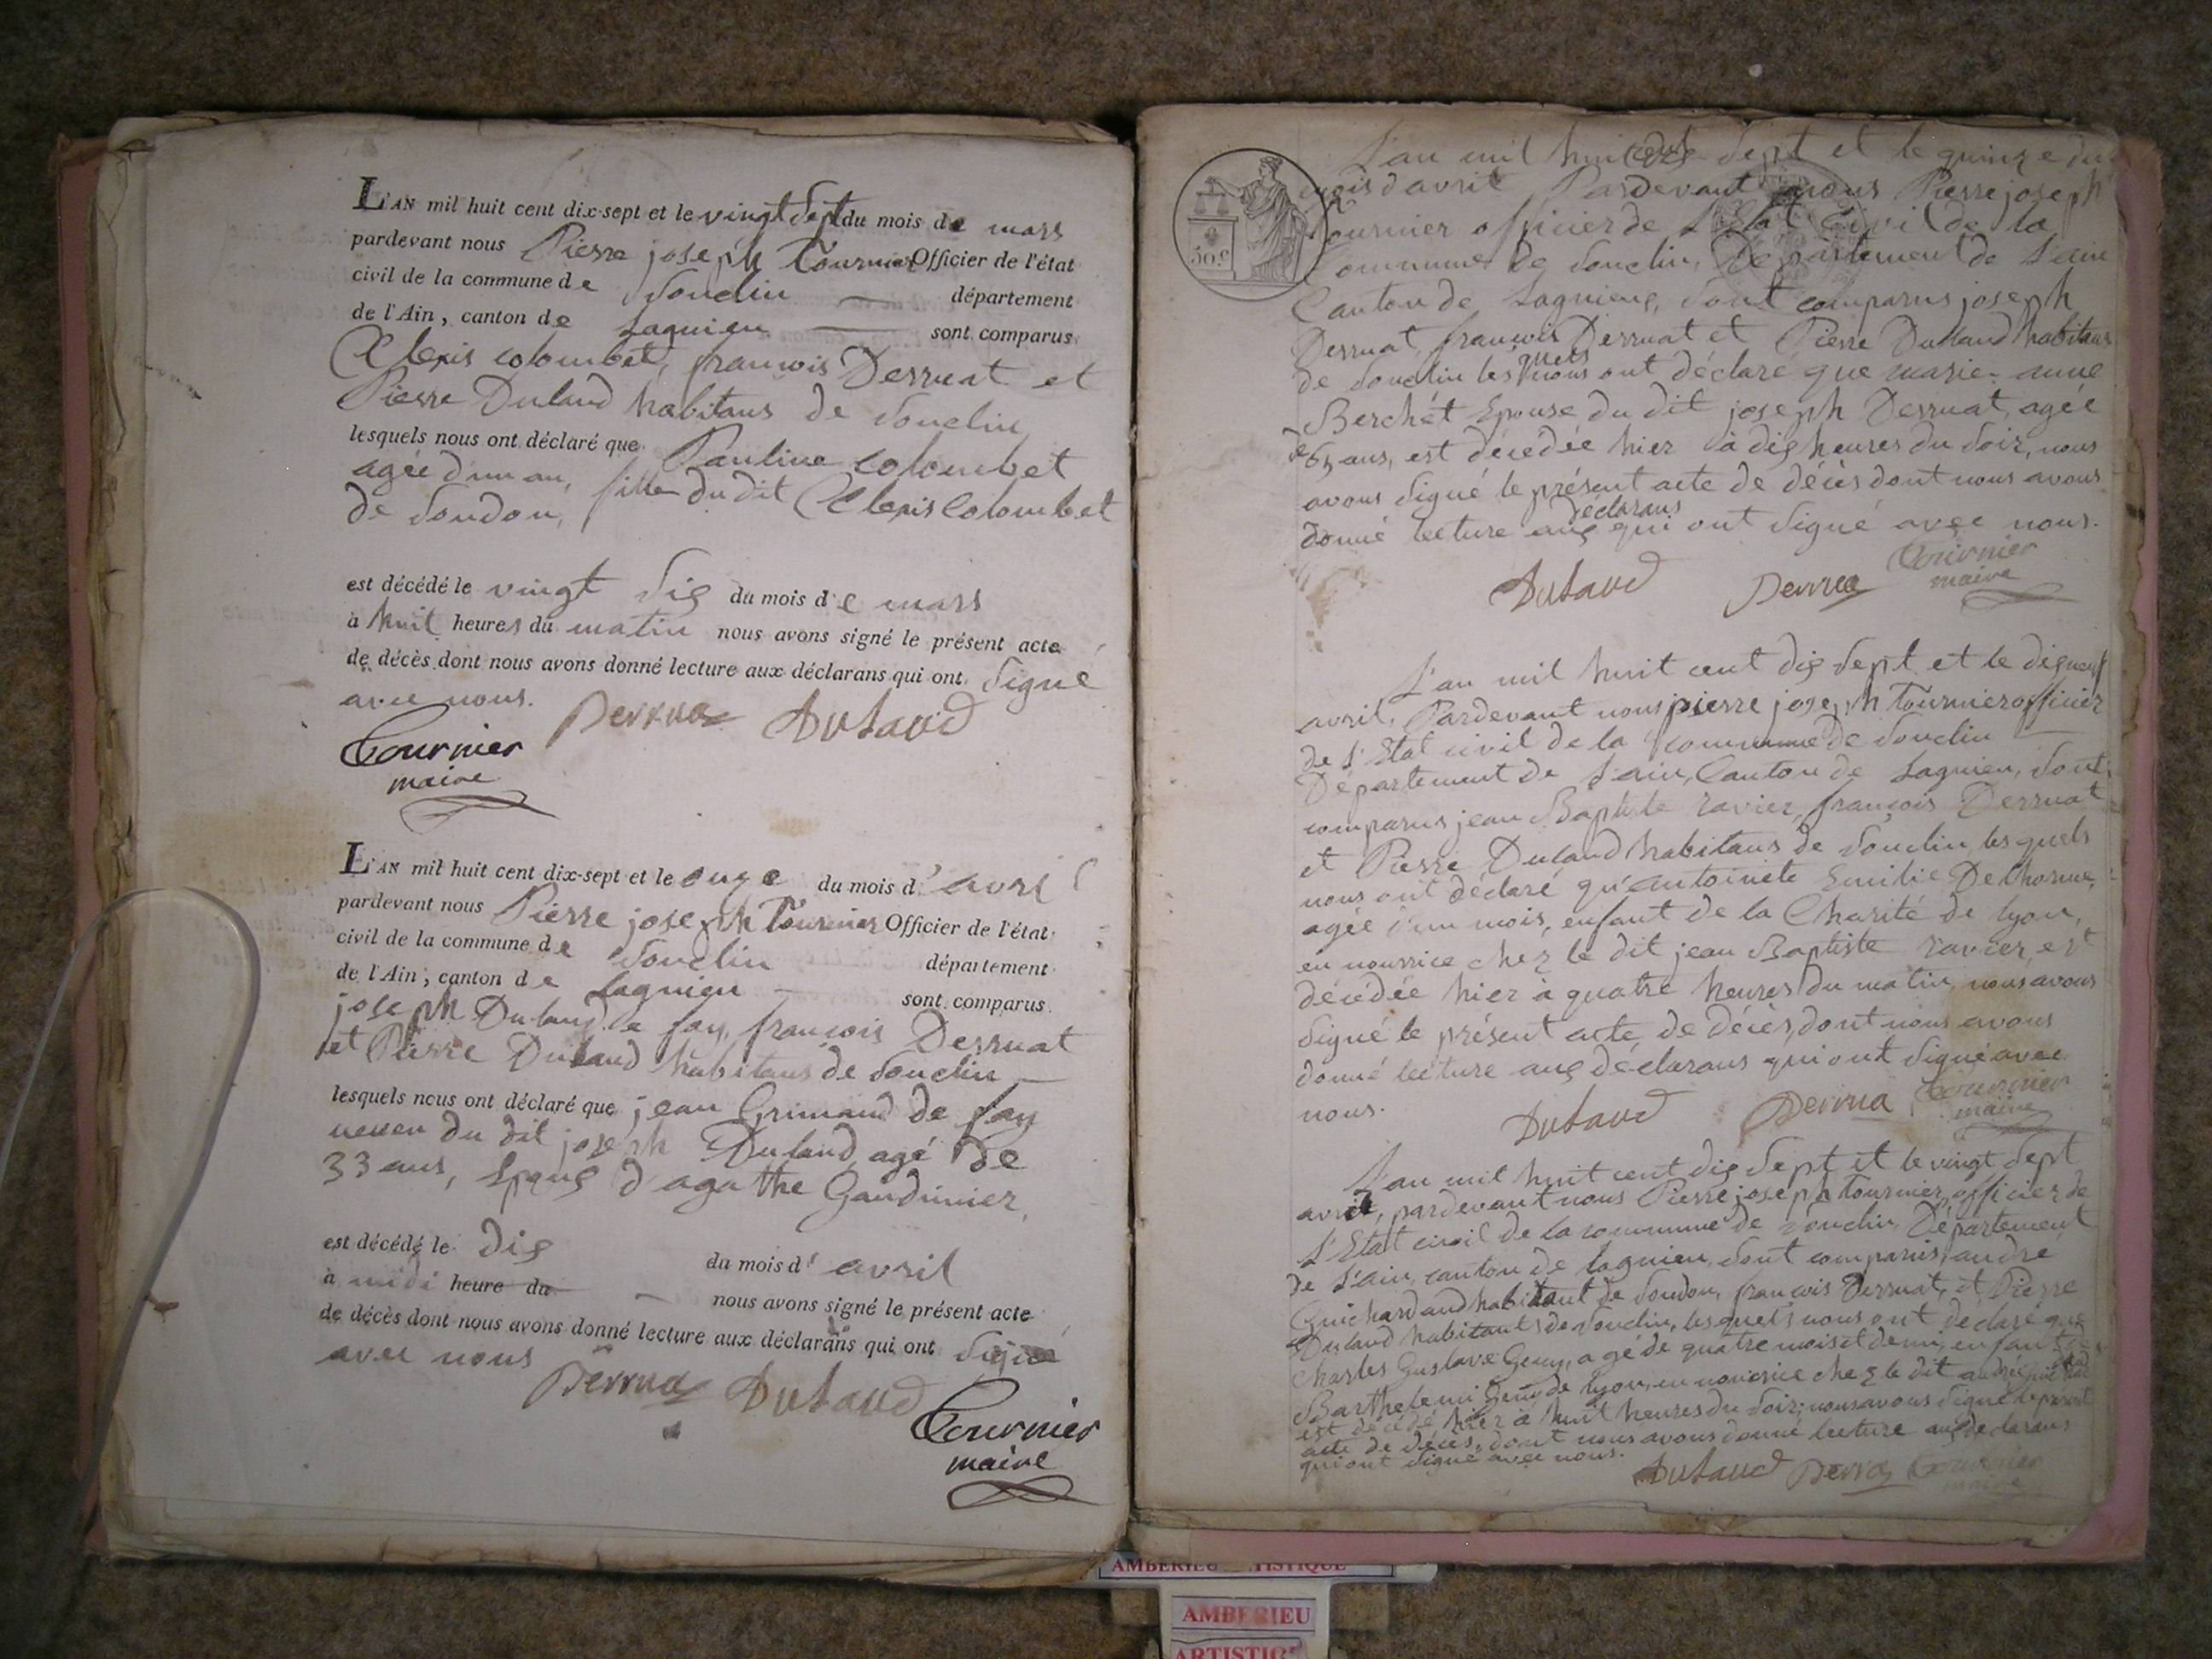 L'AN mil huit cent dix-sept et le vingt sept du mois de mars
pardevant nous Pierre joseph Tournier Officier de l'état
civil de la commune de Souclin département
de l'Ain, canton de Lagnieu sont comparus
Alexis Colombet, francois Derruat et
Pierre Dulaud habitans de Souclin
lesquels nous ont déclaré que Pauline Colombet
agée d'un an, fille du dit Alexis Colombet
de Soudon,
est décédé le vingt Six du mois de mars
à huit heures du matin nous avons signé le présent acte
de décès dont nous avons donné lecture aux déclarans qui ont Signé
avec nous.
Derrua Dulaud
Tournier
maire
L'AN mil huit cent dix-sept et le onze du mois d'avril
pardevant nous Pierre joseph Tournier Officier de l'état
civil de la commune de Souclin département
de l'Ain, canton de Lagnieu sont comparus
joseph Dulaud de fay, francois Derruat
et Pierre Dulaud habitans de Souclin
lesquels nous ont déclaré que jean Grimaud de fay
neveu du dit joseph Dulaud agé de
33 ans, Epoux d'agathe Gaudinier,
est décédé le dix du mois d'avril
à midi heure du nous avons signé le présent acte
de décès dont nous avons donné lecture aux déclarans qui ont Signé
avec nous
Derrua Dulaud
Tournier
maire
50.c
L'an mil huit cent dix Sept et le quinze du
mois d'avril Pardevant nous Pierre joseph
Tournier officier de l'Etat Civil de la
Commune de Souclin, Département de l'ain
Canton de Lagnieu, Sont comparus joseph
Derruat, francois Derruat et Pierre Dulaud habitans
de Souclin lesquels nous ont déclaré que marie-anne
Berchét Epouse du dit joseph Derruat, agée
de 65 ans, est décédée hier à dix heures du Soir, nous
avons Signé le présent acte de décès dont nous avons
donné lecture aux déclarans qui ont Signé avec nous.
Dulaud Derrua Tournier
maire
L'an mil huit cent dix Sept et le dixneuf
avril, Pardevant nous pierre joseph Tournier officier
de l'Etat civil de la commune de Souclin
Département de l'ain, Canton de Lagnieu, Sont
comparus jean Baptiste ravier, françois Derruat
et Pierre Dulaud habitans de Souclin lesquels
nous ont déclaré qu'antoinete Emilie Delhorme,
agée d'un mois, enfant de la Charité de lyon,
en nourrice chez le dit jean Baptiste ravier, est
décédée hier à quatre heures du matin, nous avons
Signé le présent acte de décès, dont nous avons
donné lecture aux déclarans qui ont Signé avec
nous.
Dulaud Derrua Tournier
maire
L'an mil huit cent dix Sept et le vingt Sept
avril, pardevant nous Pierre joseph Tournier, officier de
l'Etat civil de la commune de Souclin, Département
de l'ain, canton de lagnieu, Sont comparus, andré
Guichard habitant de Soudon, françois Derruat, et Pierre
Dulaud habitants de Souclin, lesquels nous ont declaré que
Charles Gustave Geny, agé de quatre mois et demi, enfant de
Barthelemi Geny de lyon, en nourrice chez le dit andré guichard
est décédé hier à huit heures du Soir; nous avons Signé le présent
acte de décès, dont nous avons donné lecture aux declarans
qui ont Signé avec nous.
Dulaud Derrua Tournier
maire
AMBERIEU ARTISTIQUE
AMBERIEU
ARTISTIQ